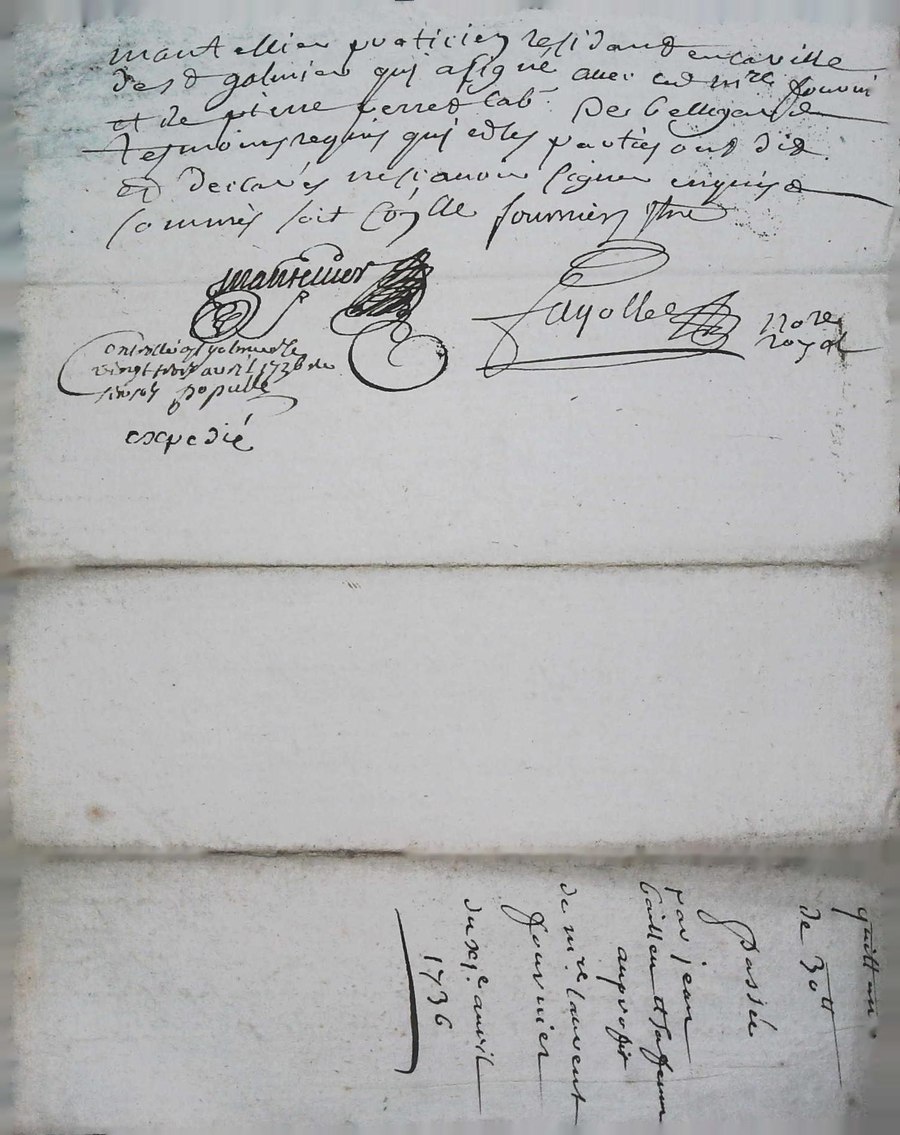 mantellier praticien residand en la ville
de s.t galmier qui a signé avec led m.re fournier
et de pierre perret lab.r de bellegarde
tesmoins requis qui et les parties ont dit
et declarés ne sçavoir signer enquis &
sommés soit
fournier p.tre
mantellier
fayolle
no.re
royal
controllé a s.t galmier le
vingt trois avril 1736
six sols populle
expedié
quittance
de 30.tt
passée
par jean
et sa femme
au profit
de m.re laurent
fournier
du xj.e avril
1736